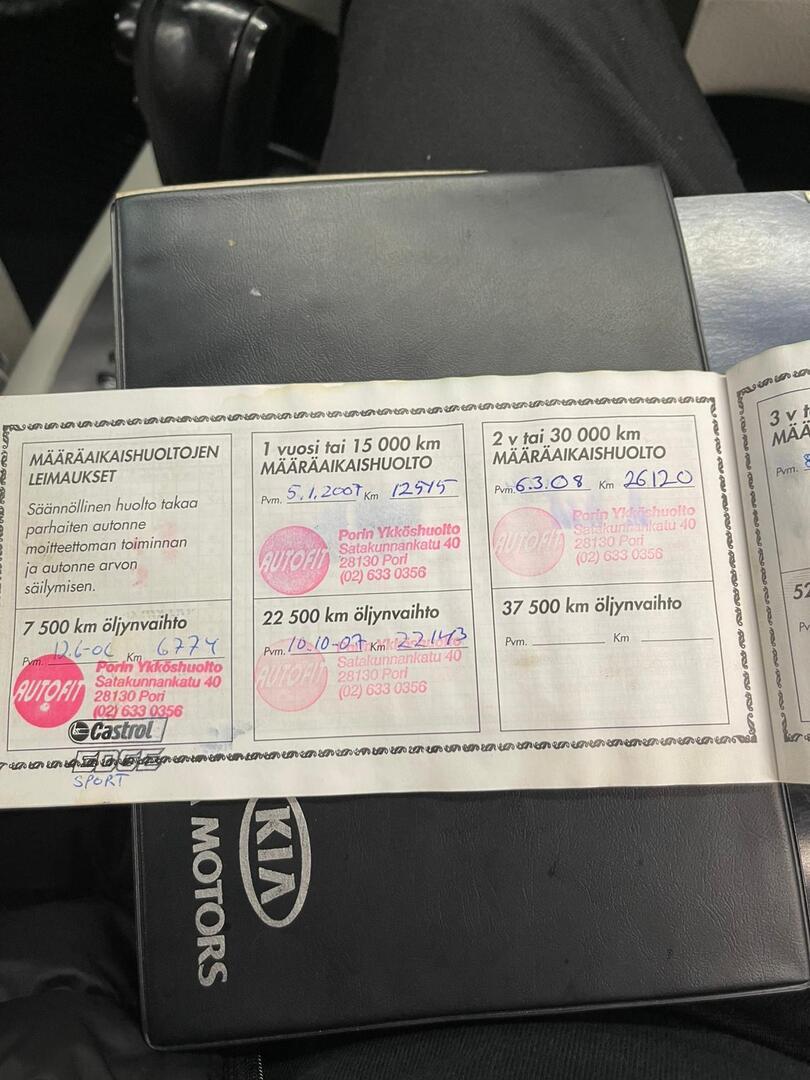 MÄÄRÄAIKAISHUOLTOJEN
LEIMAUKSET
Säännöllinen huolto takaa
parhaiten autonne
moitteettoman toiminnan
ja autonne arvon
säilymisen.
7 500 km öljynvaihto
Pvm. 12.6-06 Km 6774
AUTOFIT
Porin Ykköshuolto
Satakunnankatu 40
28130 Pori
(02) 633 0356
Castrol
EDGE
SPORT
1 vuosi tai 15 000 km
MÄÄRÄAIKAISHUOLTO
Pvm. 5.1.2007 Km 12515
AUTOFIT
Porin Ykköshuolto
Satakunnankatu 40
28130 Pori
(02) 633 0356
22 500 km öljynvaihto
Pvm. 10.10-07 Km 22143
AUTOFIT
Porin Ykköshuolto
Satakunnankatu 40
28130 Pori
(02) 633 0356
2 v tai 30 000 km
MÄÄRÄAIKAISHUOLTO
Pvm. 6.3.08 Km 26120
AUTOFIT
Porin Ykköshuolto
Satakunnankatu 40
28130 Pori
(02) 633 0356
37 500 km öljynvaihto
Pvm. Km
3 v
MÄÄ
Pvm. 8
52
KIA
MOTORS